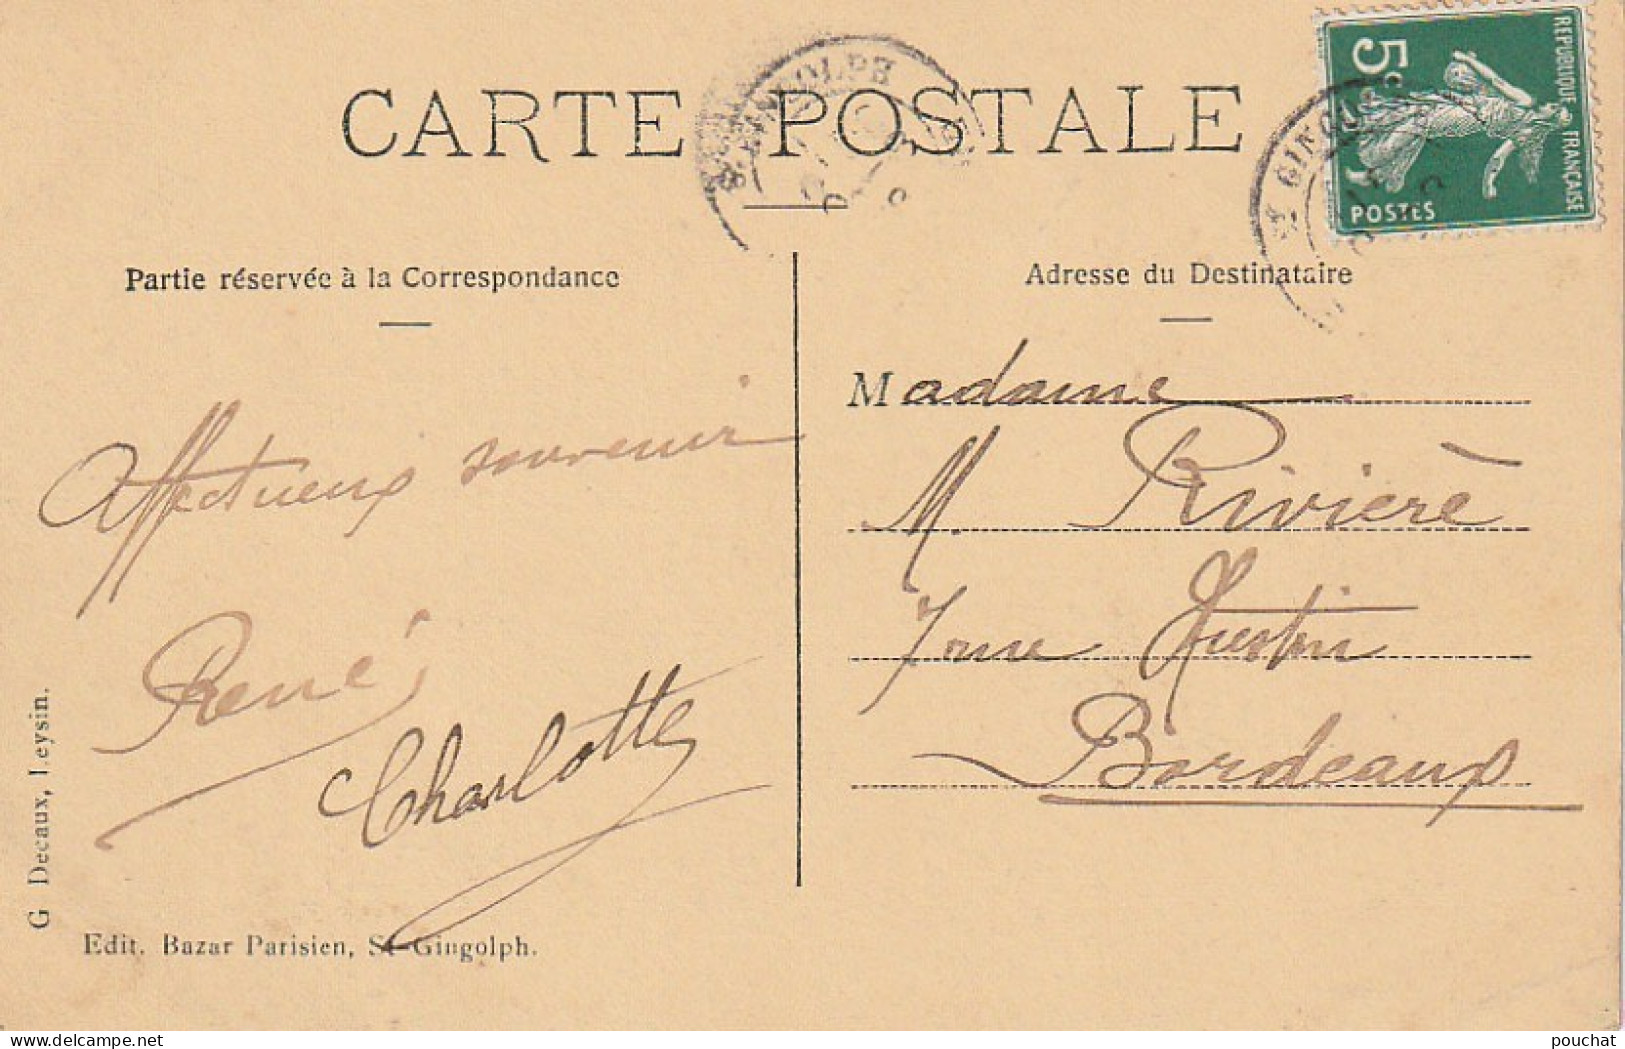 CARTE POSTALE
ST GINGOLPH
RÉPUBLIQUE FRANÇAISE
5c
POSTES
ST GINGOLPH
Partie réservée à la Correspondance
Affectueux souvenir
René
Charlotte
G Decaux, Leysin.
Edit. Bazar Parisien, St-Gingolph.
Adresse du Destinataire
Madame
M. Rivière
7 rue Justin
Bordeaux
pouchat